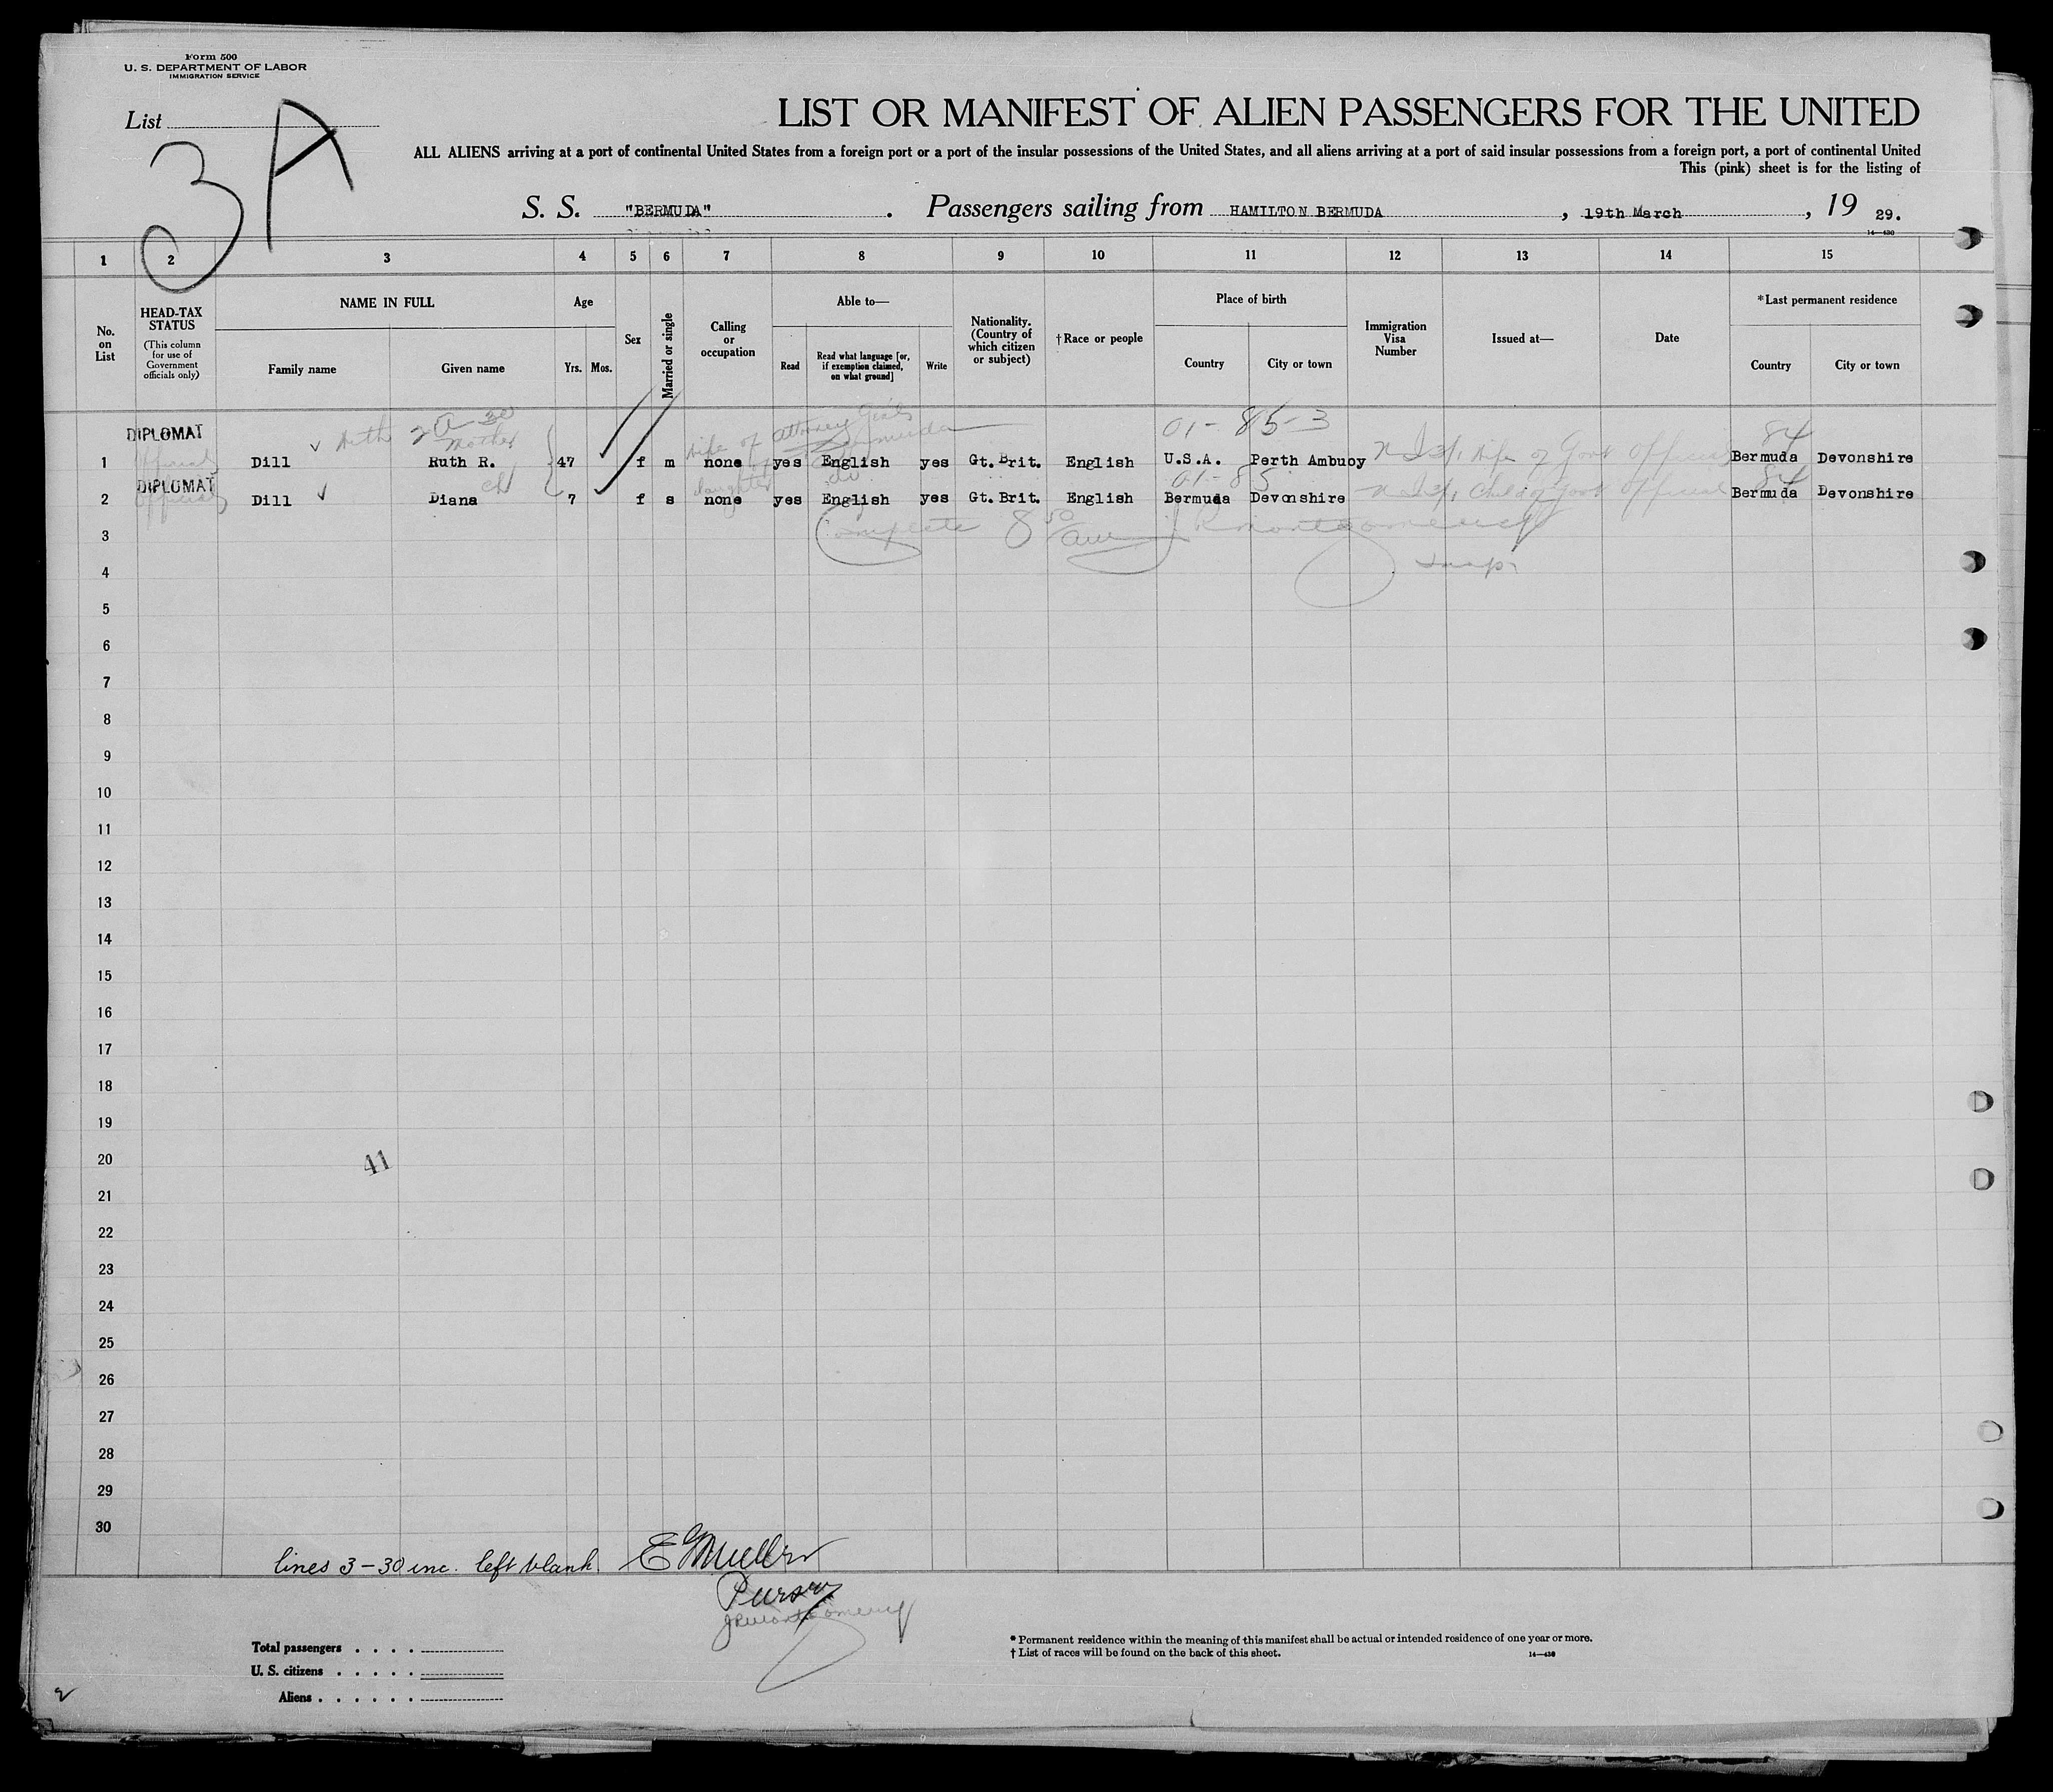 Form 500
U. S. DEPARTMENT OF LABOR
IMMIGRATION SERVICE
List
3A
LIST OR MANIFEST OF ALIEN PASSENGERS FOR THE UNITED
ALL ALIENS arriving at a port of continental United States from a foreign port or a port of the insular possessions of the United States, and all aliens arriving at a port of said insular possessions from a foreign port, a port of continental United
This (pink) sheet is for the listing of
S. S. "BERMUDA" . Passengers sailing from HAMILTON BERMUDA , 19th March , 19 29.
14—430
1 2 3 4 5 6 7 8 9 10 11 12 13 14 15
No. on List
HEAD-TAX STATUS
(This column for use of Government officials only)
NAME IN FULL
Family name Given name
Age
Yrs. Mos.
Sex
Married or single
Calling or occupation
Able to—
Read
Read what language [or, if exemption claimed, on what ground]
Write
Nationality. (Country of which citizen or subject)
†Race or people
Place of birth
Country City or town
Immigration Visa Number
Issued at—
Date
*Last permanent residence
Country City or town
DIPLOMAT Mother wife of attorney Gen'l Bermuda 01- 85-3 84
1 official Dill Ruth R. 47 f m none yes English yes Gt.Brit. English U.S.A. Perth Ambuoy Wife of Govt Official Bermuda Devonshire
DIPLOMAT ch daughter do 01-85 84
2 official Dill Diana 7 f s none yes English yes Gt.Brit. English Bermuda Devonshire Child of Govt Official Bermuda Devonshire
3 Complete 8 50 am JR Montgomery
4 Insp
5
6
7
8
9
10
11
12
13
14
15
16
17
18
19
20 41
21
22
23
24
25
26
27
28
29
30
lines 3-30 inc. left blank. E G Muller
Purser
JR Montgomery
Total passengers . . . .
U. S. citizens . . . . .
Aliens . . . . . .
* Permanent residence within the meaning of this manifest shall be actual or intended residence of one year or more.
† List of races will be found on the back of this sheet.
14—430